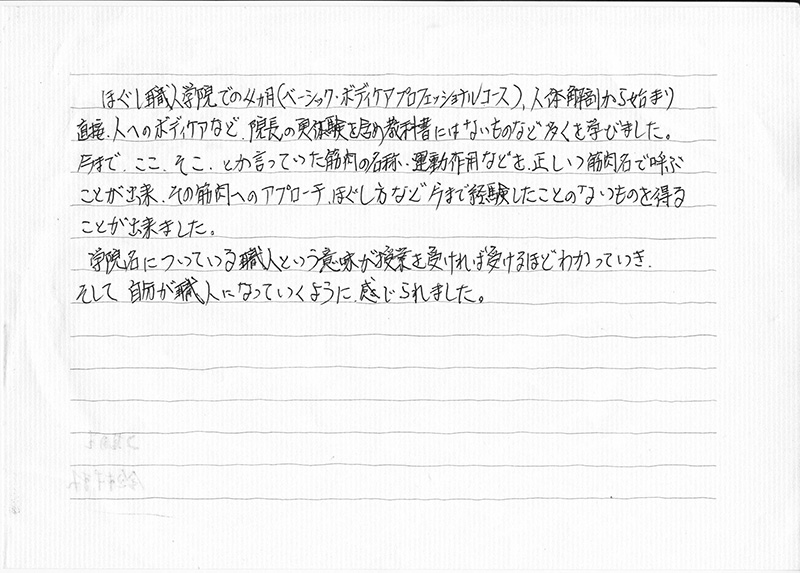 ほぐし職人学院での4ヵ月(ベーシック・ボディケアプロフェッショナルコース)、人体解剖から始まり
直接、人へのボディケアなど、院長の実体験を含め教科書にはないものなど多くを学びました。
今まで、ここ、そこ、とか言っていた筋肉の名称・運動作用などを、正しい筋肉名で呼ぶ
ことが出来、その筋肉へのアプローチ、ほぐし方など今まで経験したことのないものを得る
ことが出来ました。
学院名についている職人という意味が授業を受ければ受けるほどわかっていき、
そして 自分が職人になっていくように、感じられました。